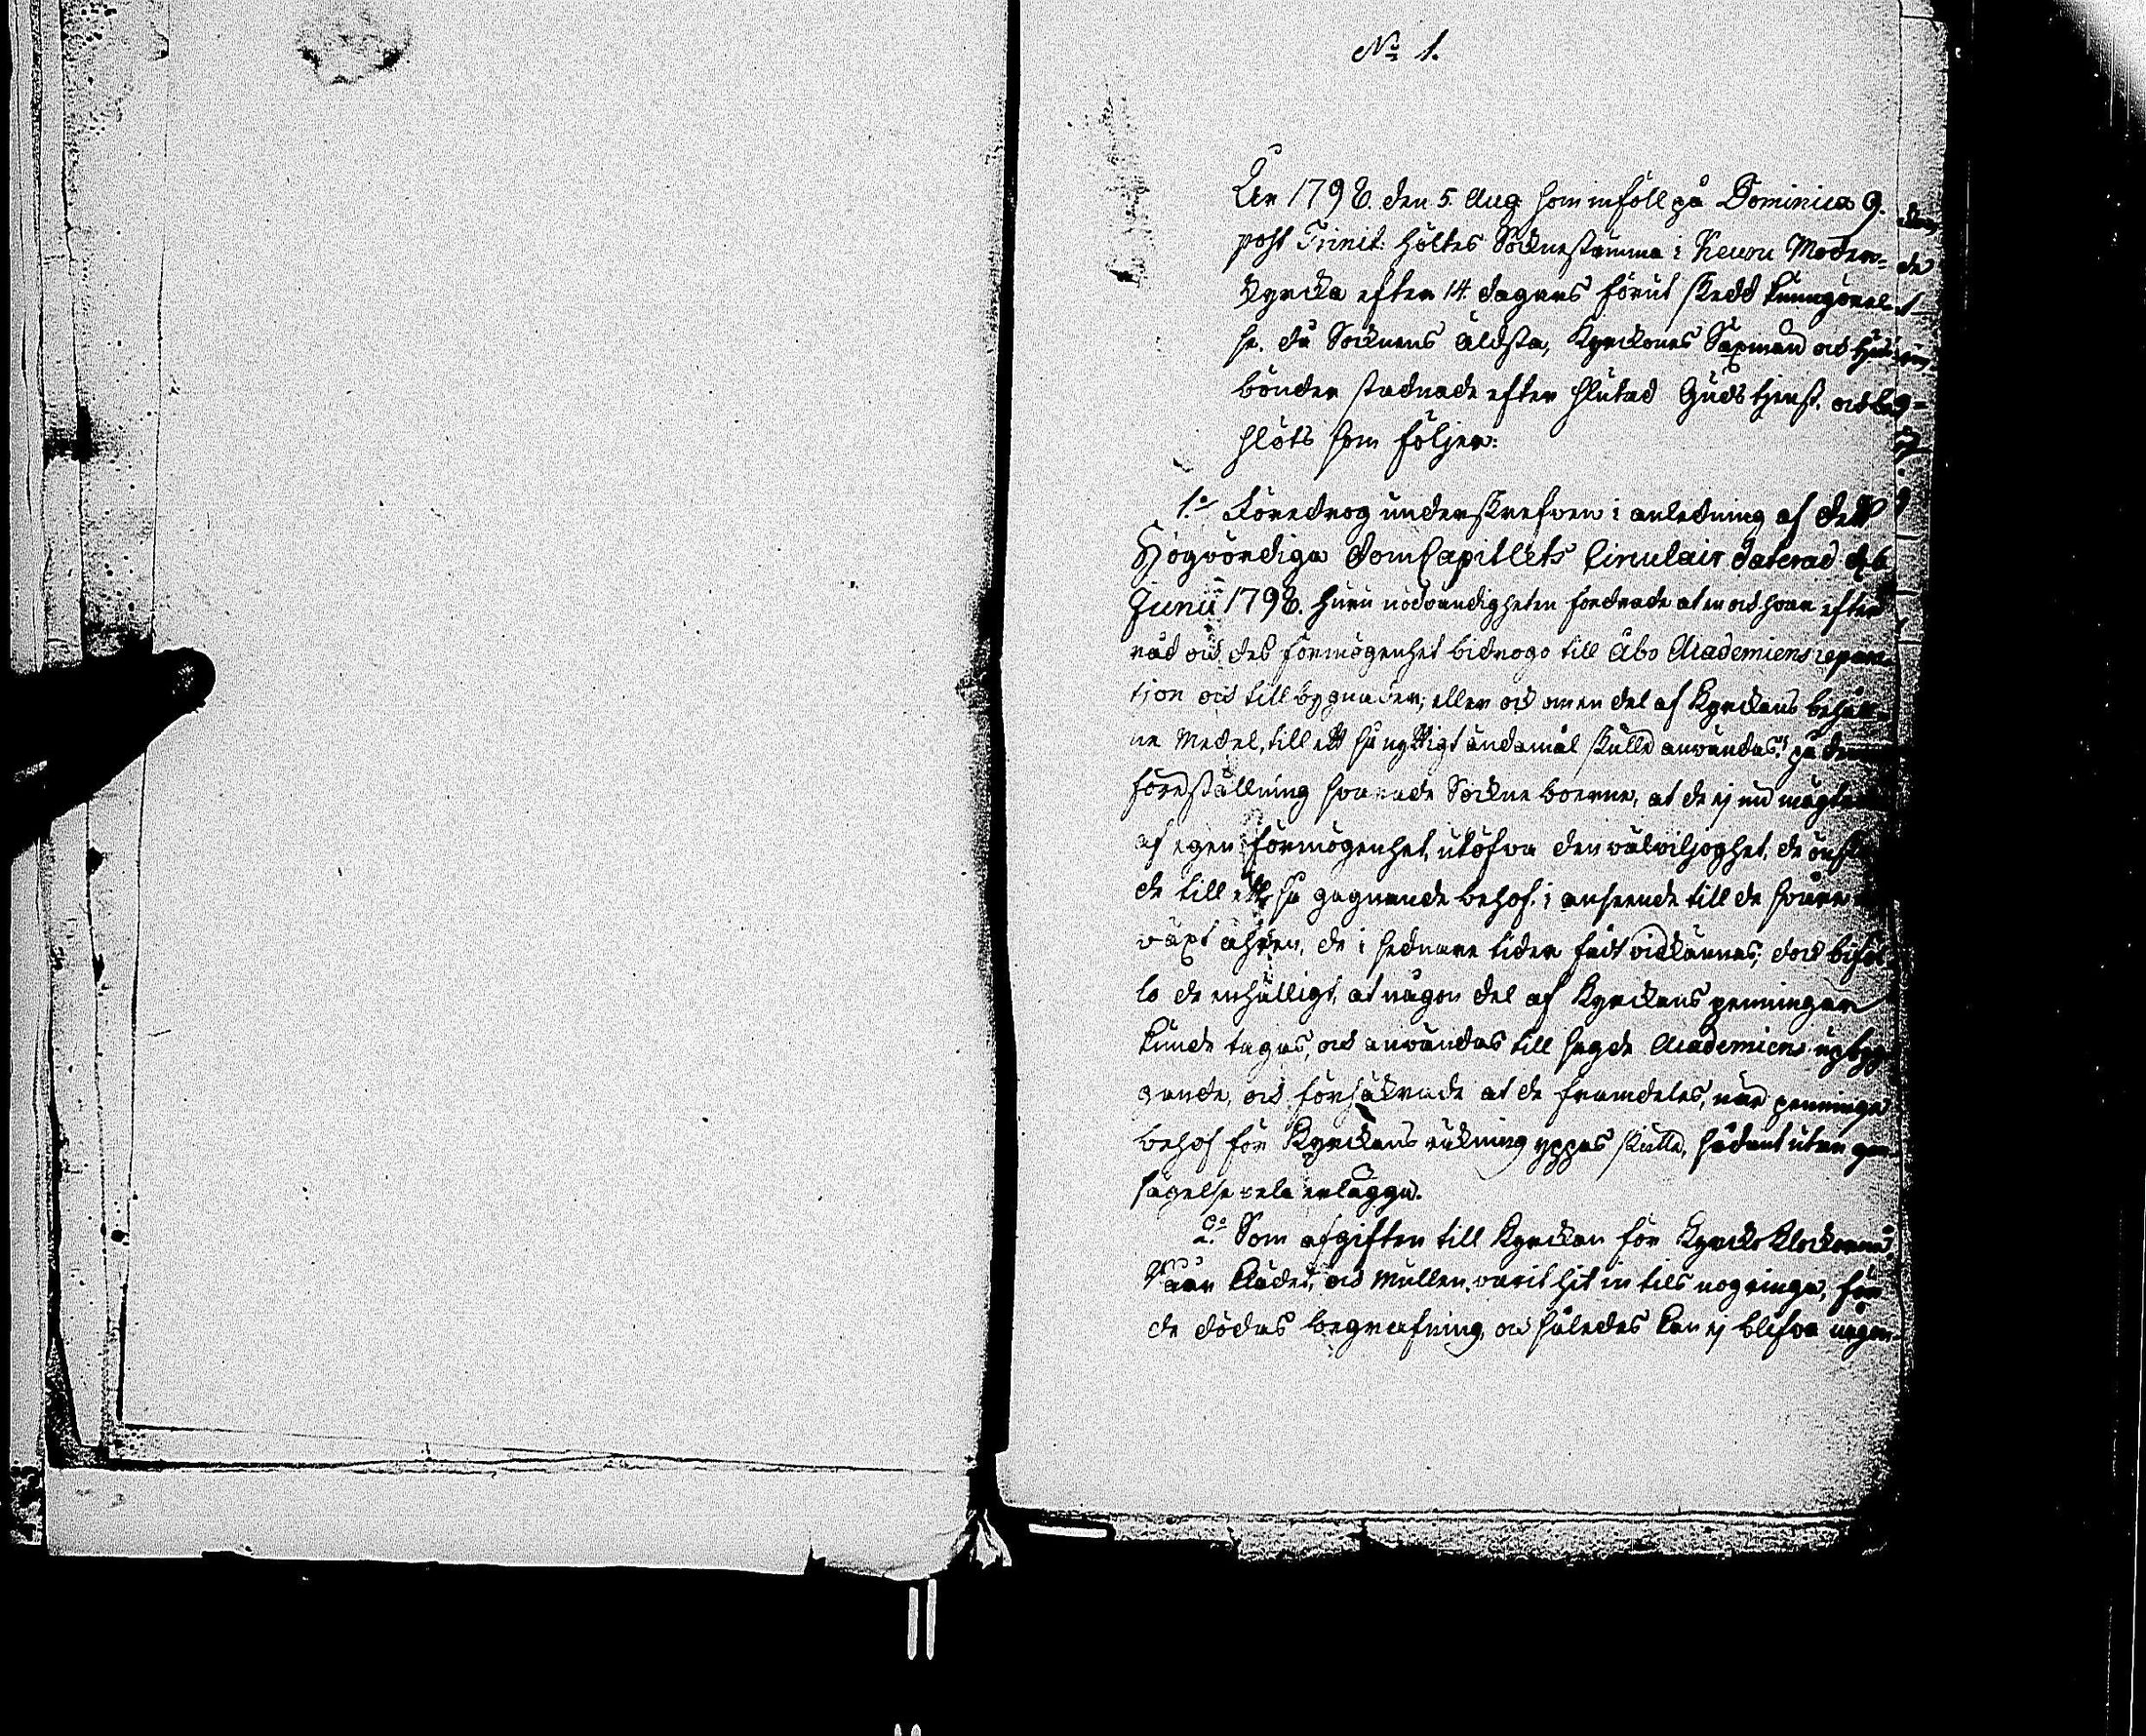 No 1.
År 1798. den 5. Aug som inföll på Dominica 9.
post Trinit: höltes Sockne stämma i Keuru Moder=
kyrcka efter 14. dagars förut skedd kungörel
se. då Socknens äldsta, Kyrckones Säxmän och
bönder stadnade efter slutad Gudstjenst. och be
slöts som följer:
1:o Föredrog underskrefven i anledning af dett
Högvördiga DomCapitlets Circulair daterad d. 6
Junii 1798. huru nödvändigheten fordrade at en och hvar efter
råd och des förmögenhet bidrogo till Åbo Academiens repara
tion och till bygnader; eller och om en del af Kyrckans behåll
ne Medel, till ett så nyttigt ändamål skulle användas; på denna
föreställning svarade Sockne boerne, at de ej nu mägta
af egen förmögenhet, utöfva den välviljoghet, de önska
de till ett så gagnande behof. i anseende till de svåra
växt åhren, de i sednare tider fådt vidkännas; dock biföl
lo de enhälligt, at någon del af Kyrckans penningar
kunde tagas, och användas till sagde Academiens upbyg
gande, och försäkrade at de framdeles, när penninge
behof för Kyrckans räkning yppas skulle, sådant utan gen
sägelse vela erlägga.
2:o Som afgiften till Kyrckan för Kyrcko Klockorna,
Baar klädet, och mullen, varit hit in tils nog ringa, för
de dödas begrafning, och således kan ej blifva någon